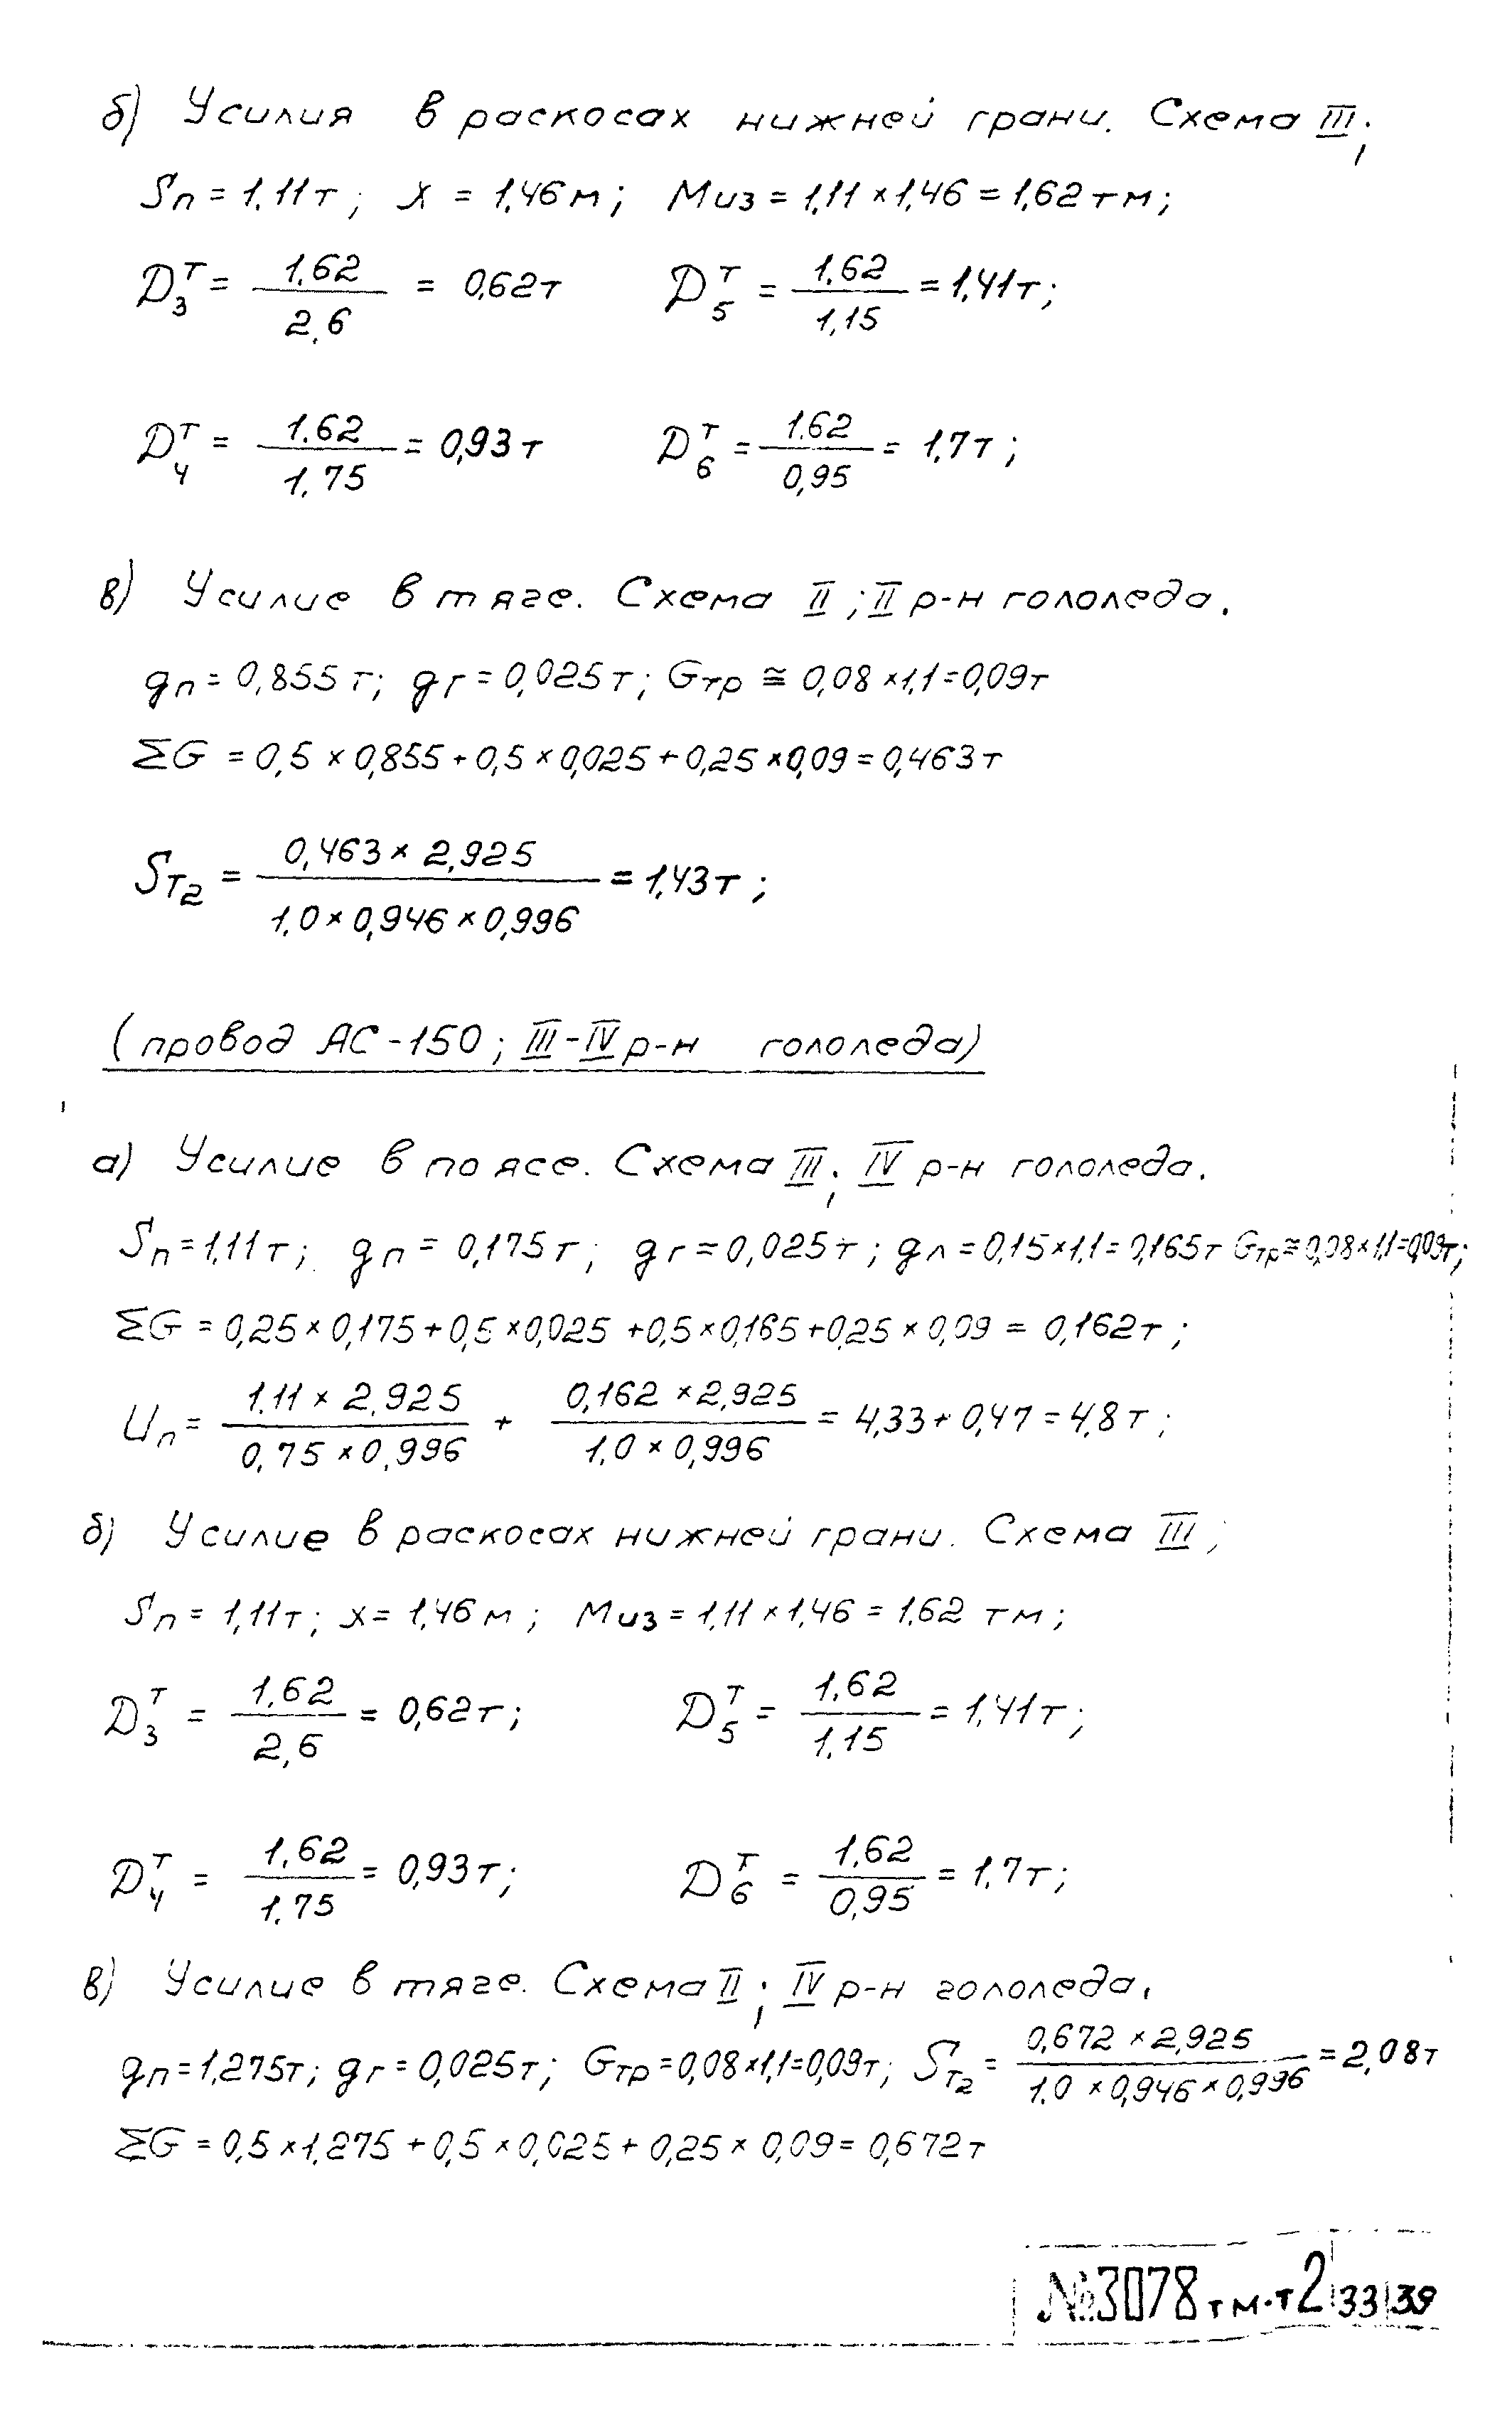 б) Усилия в раскосах нижней грани. Схема III;
Sп = 1,11т; x = 1,46м; Mиз = 1,11 × 1,46 = 1,62 тм;
D₃ᵀ = 1,62 / 2,6 = 0,62т D₅ᵀ = 1,62 / 1,15 = 1,41т;
D₄ᵀ = 1,62 / 1,75 = 0,93т D₆ᵀ = 1,62 / 0,95 = 1,7т;
в) Усилие в тяге. Схема II; II р-н гололеда.
gп = 0,855т; gг = 0,025т; Gтр ≅ 0,08 × 1,1 = 0,09т
ΣG = 0,5 × 0,855 + 0,5 × 0,025 + 0,25 × 0,09 = 0,463т
Sт₂ = 0,463 × 2,925 / 1,0 × 0,946 × 0,996 = 1,43т;
(провод АС-150; III-IV р-н гололеда)
а) Усилие в поясе. Схема III; IV р-н гололеда.
Sп = 1,11т; gп = 0,175т; gг = 0,025т; gл = 0,15 × 1,1 = 0,165т Gтр ≅ 0,08 × 1,1 = 0,09т;
ΣG = 0,25 × 0,175 + 0,5 × 0,025 + 0,5 × 0,165 + 0,25 × 0,09 = 0,162т;
Uп = 1,11 × 2,925 / 0,75 × 0,996 + 0,162 × 2,925 / 1,0 × 0,996 = 4,33 + 0,47 = 4,8т;
б) Усилие в раскосах нижней грани. Схема III;
Sп = 1,11т; x = 1,46м; Mиз = 1,11 × 1,46 = 1,62 тм;
D₃ᵀ = 1,62 / 2,6 = 0,62т; D₅ᵀ = 1,62 / 1,15 = 1,41т;
D₄ᵀ = 1,62 / 1,75 = 0,93т; D₆ᵀ = 1,62 / 0,95 = 1,7т;
в) Усилие в тяге. Схема II; IV р-н гололеда.
gп = 1,275т; gг = 0,025т; Gтр = 0,08 × 1,1 = 0,09т; Sт₂ = 0,672 × 2,925 / 1,0 × 0,946 × 0,996 = 2,08т
ΣG = 0,5 × 1,275 + 0,5 × 0,025 + 0,25 × 0,09 = 0,672т
№3078тм-т2 33 39